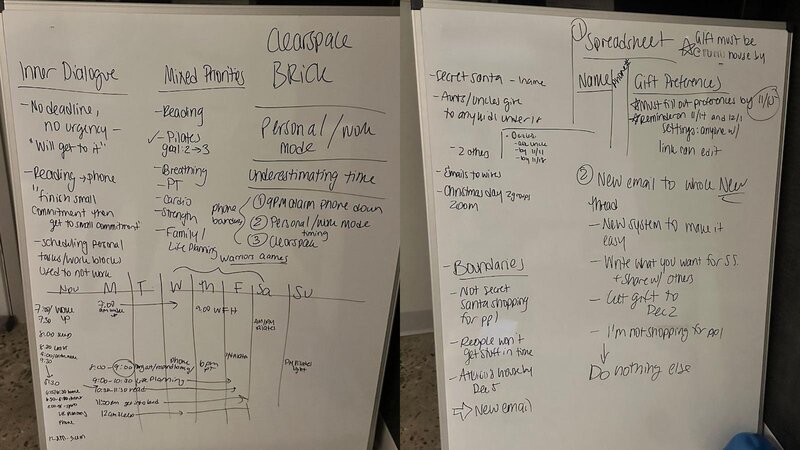 Clearspace
BRICK
Inner Dialogue
- No deadline,
no urgency -
"Will get to it"
- Reading → phone
"finish small
commitment then
get to small commitment"
- scheduling personal
tasks/work blocks
used to not work
Mixed Priorities
- Reading
✓ - Pilates
goal: 2 → 3
- Breathing
- PT
- Cardio
- Strength
- Family/
Life Planning
Personal/work
mode
Underestimating time
phone
boundaries
① 9pm alarm phone down
② Personal/work mode
timing
③ Clearspace
warriors games
Nov M T W Th F Sa Su
7:00/ wake
up
7:30
7:00
→ 9:00 WFH
8:00
8:30
9:30
phone
6pm
PT
8:00-9:00
9:00-10:30 Life Planning
10:30-11:30 read
11:30am get to bed
12am sleep
phone
① Spreadsheet
☆ Gift must be
house by
Name
Gift Preferences
☆ Must fill out preferences by 11/15
☆ Reminder on 11/14 and 12/1
settings: anyone w/
link can edit
- Secret santa - 1 name
- Aunts/uncles give
to any kids under 18
- 2 others
- by 11/11
- by 11/18
- Emails to wires
- Christmas day 2 groups
zoom
② New email to whole New
thread
- New system to make it
easy
- Write what you want for S.S.
+ share w/ others
- Get gift to
Dec 2
- I'm not shopping for ppl
↓
Do nothing else
- Boundaries
- Not secret
santa shopping
for ppl
- People won't
get stuff in time
house by
Dec 5
⇨ New email